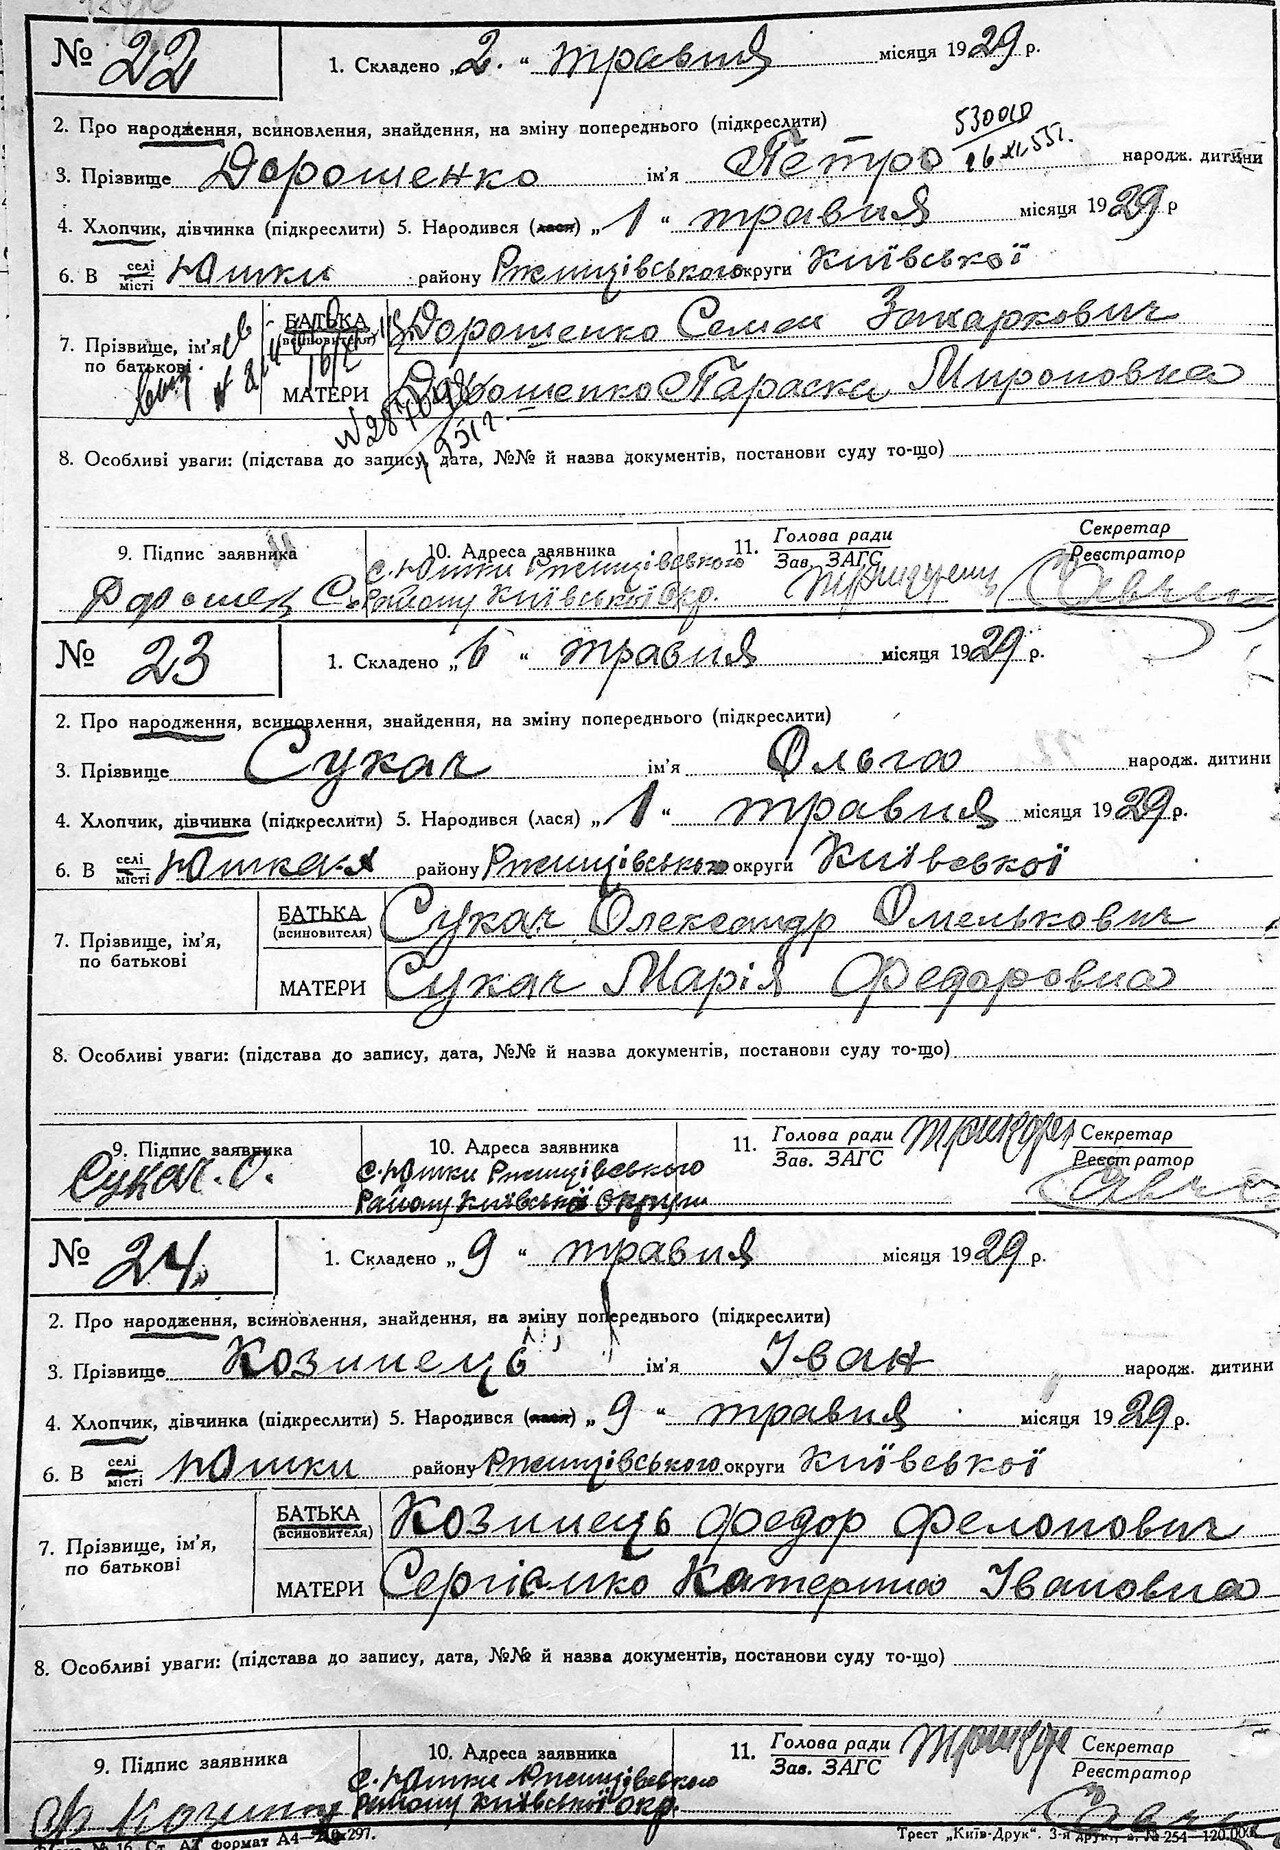 № 22 1. Складено „2.“ травня місяця 1929 р.
2. Про народження, всиновлення, знайдення, на зміну попереднього (підкреслити)
3. Прізвище Дорошенко ім'я Петро народж. дитини
4. Хлопчик, дівчинка (підкреслити) 5. Народився (лася) „1“ травня місяця 1929 р
6. В селі місті Юшки району Ржищівського округи Київської
7. Прізвище, ім'я по батькові
БАТЬКА (всиновителя) Дорошенко Семен Захаркович
МАТЕРИ Дорошенко Параска Мироновна
8. Особливі уваги: (підстава до запису, дата, №№ й назва документів, постанови суду то-що)
9. Підпис заявника 10. Адреса заявника 11. Голова ради Зав. ЗАГС Секретар Реєстратор
с. Юшки Ржищівського
району Київської окр.
№ 23 1. Складено „6“ травня місяця 1929 р.
2. Про народження, всиновлення, знайдення, на зміну попереднього (підкреслити)
3. Прізвище Сукач ім'я Ольга народж. дитини
4. Хлопчик, дівчинка (підкреслити) 5. Народився (лася) „1“ травня місяця 1929 р.
6. В селі місті Юшках району Ржищівського округи Київської
7. Прізвище, ім'я, по батькові
БАТЬКА (всиновителя) Сукач Олександр Омелькович
МАТЕРИ Сукач Марія Федоровна
8. Особливі уваги: (підстава до запису, дата, №№ й назва документів, постанови суду то-що)
9. Підпис заявника 10. Адреса заявника 11. Голова ради Зав. ЗАГС Секретар Реєстратор
Сукач. О. с. Юшки Ржищівського
району Київської округи
№ 24. 1. Складено „9“ травня місяця 1929 р.
2. Про народження, всиновлення, знайдення, на зміну попереднього (підкреслити)
3. Прізвище Козинець ім'я Іван народж. дитини
4. Хлопчик, дівчинка (підкреслити) 5. Народився (лася) „9“ травня місяця 1929 р.
6. В селі місті Юшки району Ржищівського округи Київської
7. Прізвище, ім'я, по батькові
БАТЬКА (всиновителя) Козинець Федор Филонович
МАТЕРИ Сергієнко Катерина Івановна
8. Особливі уваги: (підстава до запису, дата, №№ й назва документів, постанови суду то-що)
9. Підпис заявника 10. Адреса заявника 11. Голова ради Зав. ЗАГС Секретар Реєстратор
с. Юшки Ржищівського
району Київської окр.
№ 16. Ст. А7 формат А4—210х297. Трест „Київ-Друк“. 3-я друк., з. № 254—120.000.